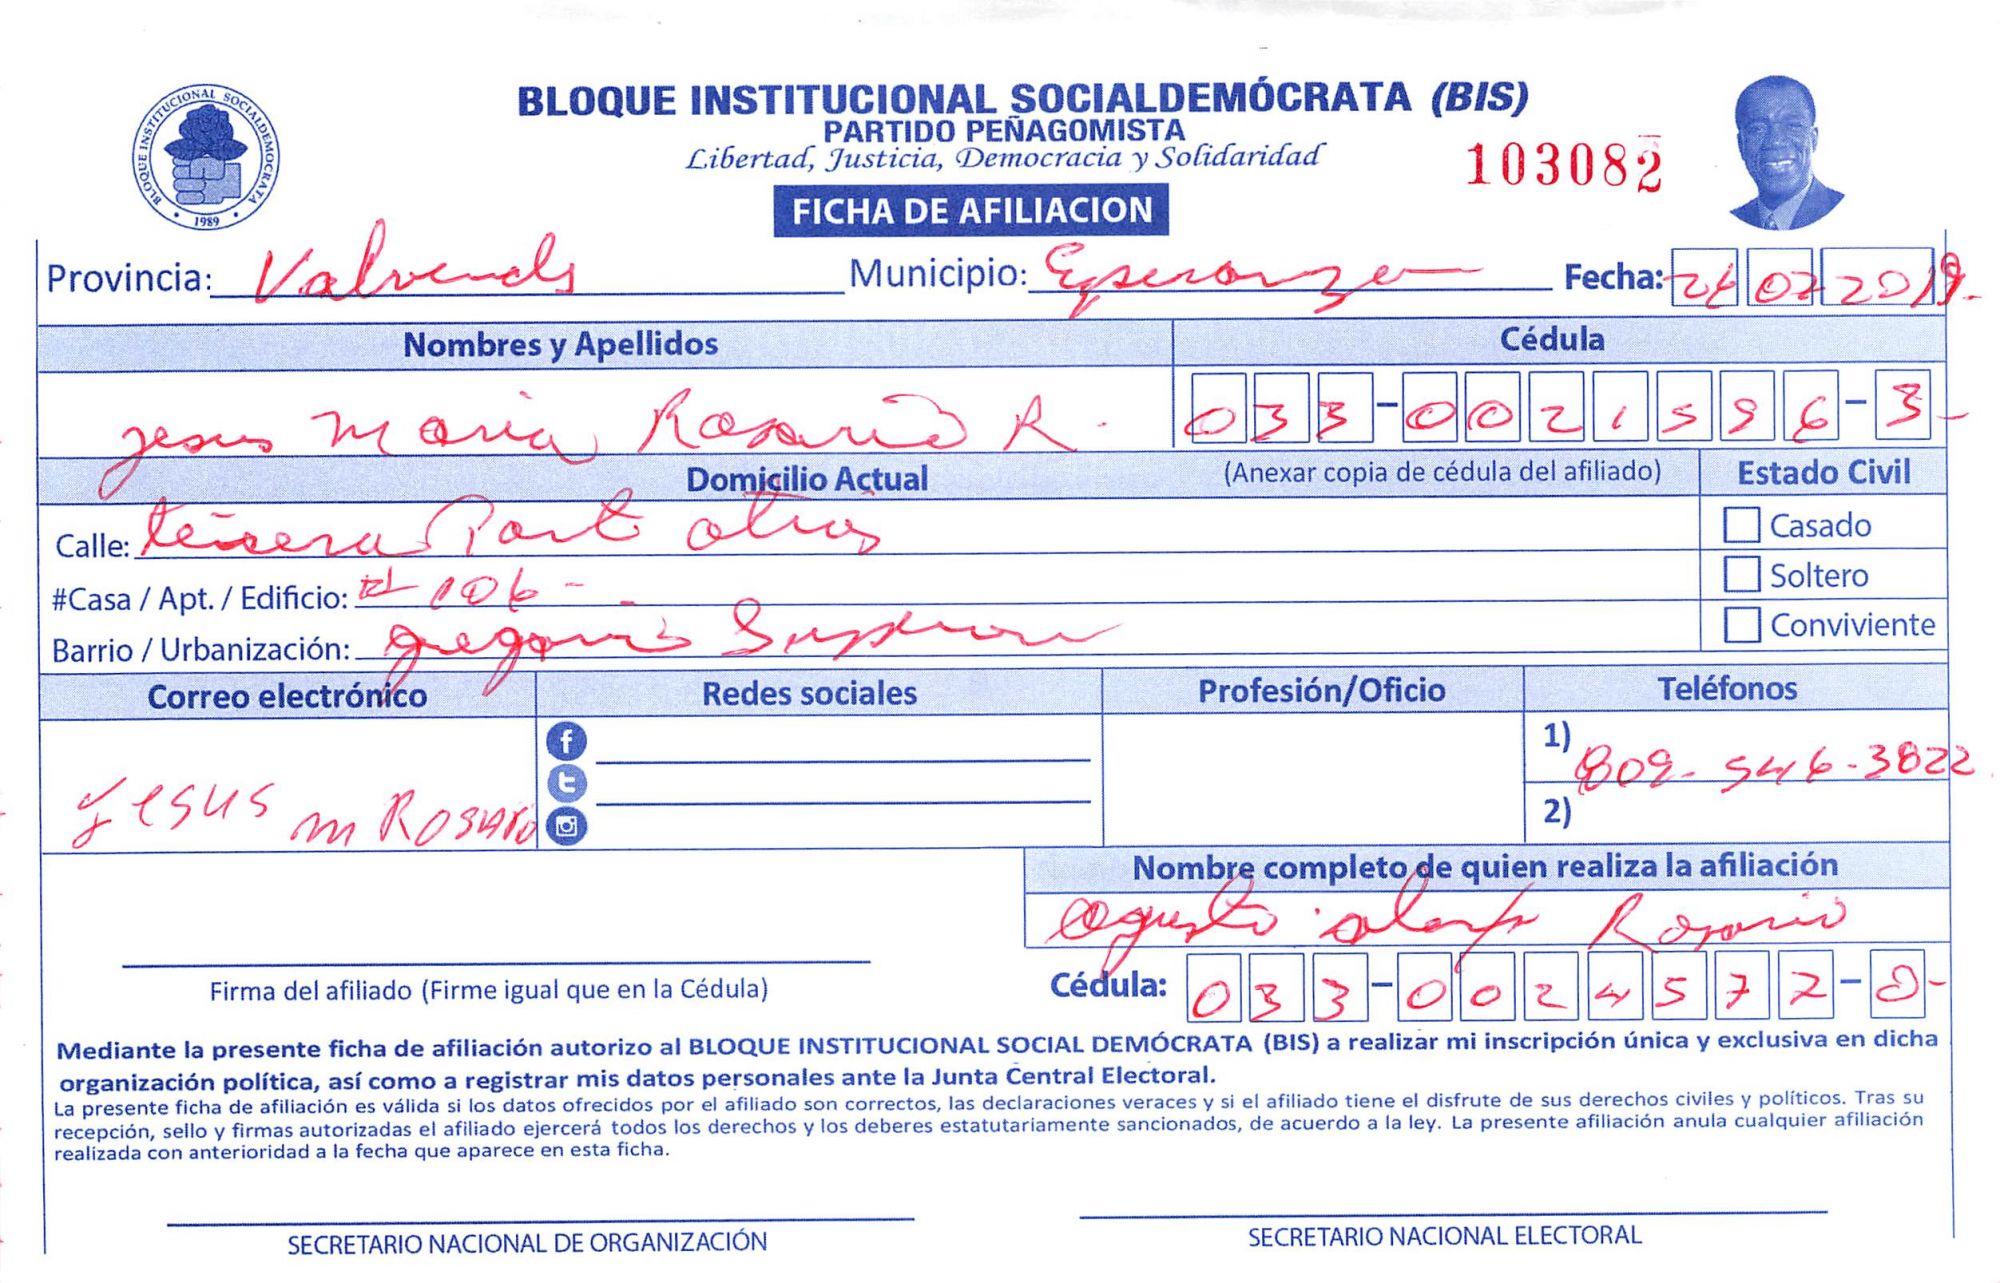 BLOQUE INSTITUCIONAL SOCIALDEMÓCRATA (BIS)
PARTIDO PEÑAGOMISTA
Libertad, Justicia, Democracia y Solidaridad
103082
BLOQUE INSTITUCIONAL SOCIALDEMOCRATA
1989
FICHA DE AFILIACION
Provincia: Municipio: Esperanza Fecha: 26 02 2019.
Nombres y Apellidos Cédula
Jesus Maria Rosario R. 033-0021596-3
Domicilio Actual (Anexar copia de cédula del afiliado) Estado Civil
Calle: Casado
#Casa / Apt. / Edificio: # 106 - Soltero
Barrio / Urbanización: Conviviente
Correo electrónico Redes sociales Profesión/Oficio Teléfonos
1) 809-546-3822
Jesus m Rosario
2)
Nombre completo de quien realiza la afiliación
Rosario
Cédula: 033-0024577-0-
Firma del afiliado (Firme igual que en la Cédula)
Mediante la presente ficha de afiliación autorizo al BLOQUE INSTITUCIONAL SOCIAL DEMÓCRATA (BIS) a realizar mi inscripción única y exclusiva en dicha
organización política, así como a registrar mis datos personales ante la Junta Central Electoral.
La presente ficha de afiliación es válida si los datos ofrecidos por el afiliado son correctos, las declaraciones veraces y si el afiliado tiene el disfrute de sus derechos civiles y políticos. Tras su
recepción, sello y firmas autorizadas el afiliado ejercerá todos los derechos y los deberes estatutariamente sancionados, de acuerdo a la ley. La presente afiliación anula cualquier afiliación
realizada con anterioridad a la fecha que aparece en esta ficha.
SECRETARIO NACIONAL DE ORGANIZACIÓN SECRETARIO NACIONAL ELECTORAL